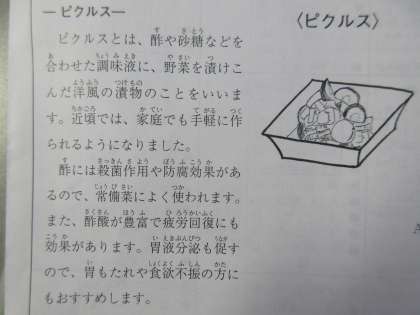 ―ピクルス―
〈ピクルス〉
ピクルスとは、酢や砂糖などを
合わせた調味液に、野菜を漬けこ
んだ洋風の漬物のことをいいま
す。近頃では、家庭でも手軽に作
られるようになりました。
酢には殺菌作用や防腐効果があ
るので、常備菜によく使われます。
また、酢酸が豊富で疲労回復にも
効果があります。胃液分泌も促す
ので、胃もたれや食欲不振の方に
もおすすめします。